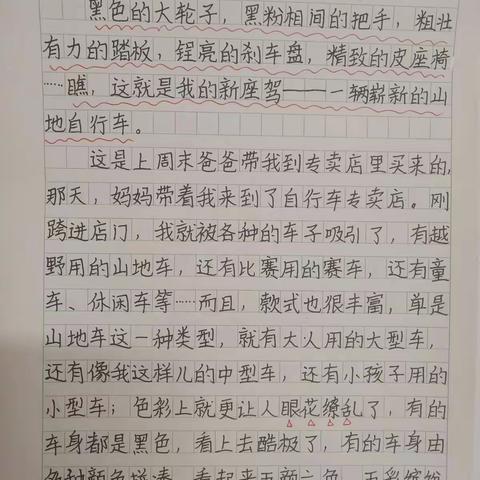 黑色的大轮子，黑粉相间的把手，粗壮
有力的踏板，锃亮的刹车盘，精致的皮座椅
……瞧，这就是我的新座驾——一辆崭新的山
地自行车。
这是上周末爸爸带我到专卖店里买来的，
那天，妈妈带着我来到了自行车专卖店。刚
跨进店门，我就被各种的车子吸引了，有越
野用的山地车，还有比赛用的赛车，还有童
车、休闲车等……而且，款式也很丰富，单是
山地车这一种类型，就有大人用的大型车，
还有像我这样儿的中型车，还有小孩子用的
小型车；色彩上就更让人眼花缭乱了，有的
车身都是黑色，看上去酷极了，有的车身由
各种颜色拼凑，看起来五颜六色，五彩缤纷